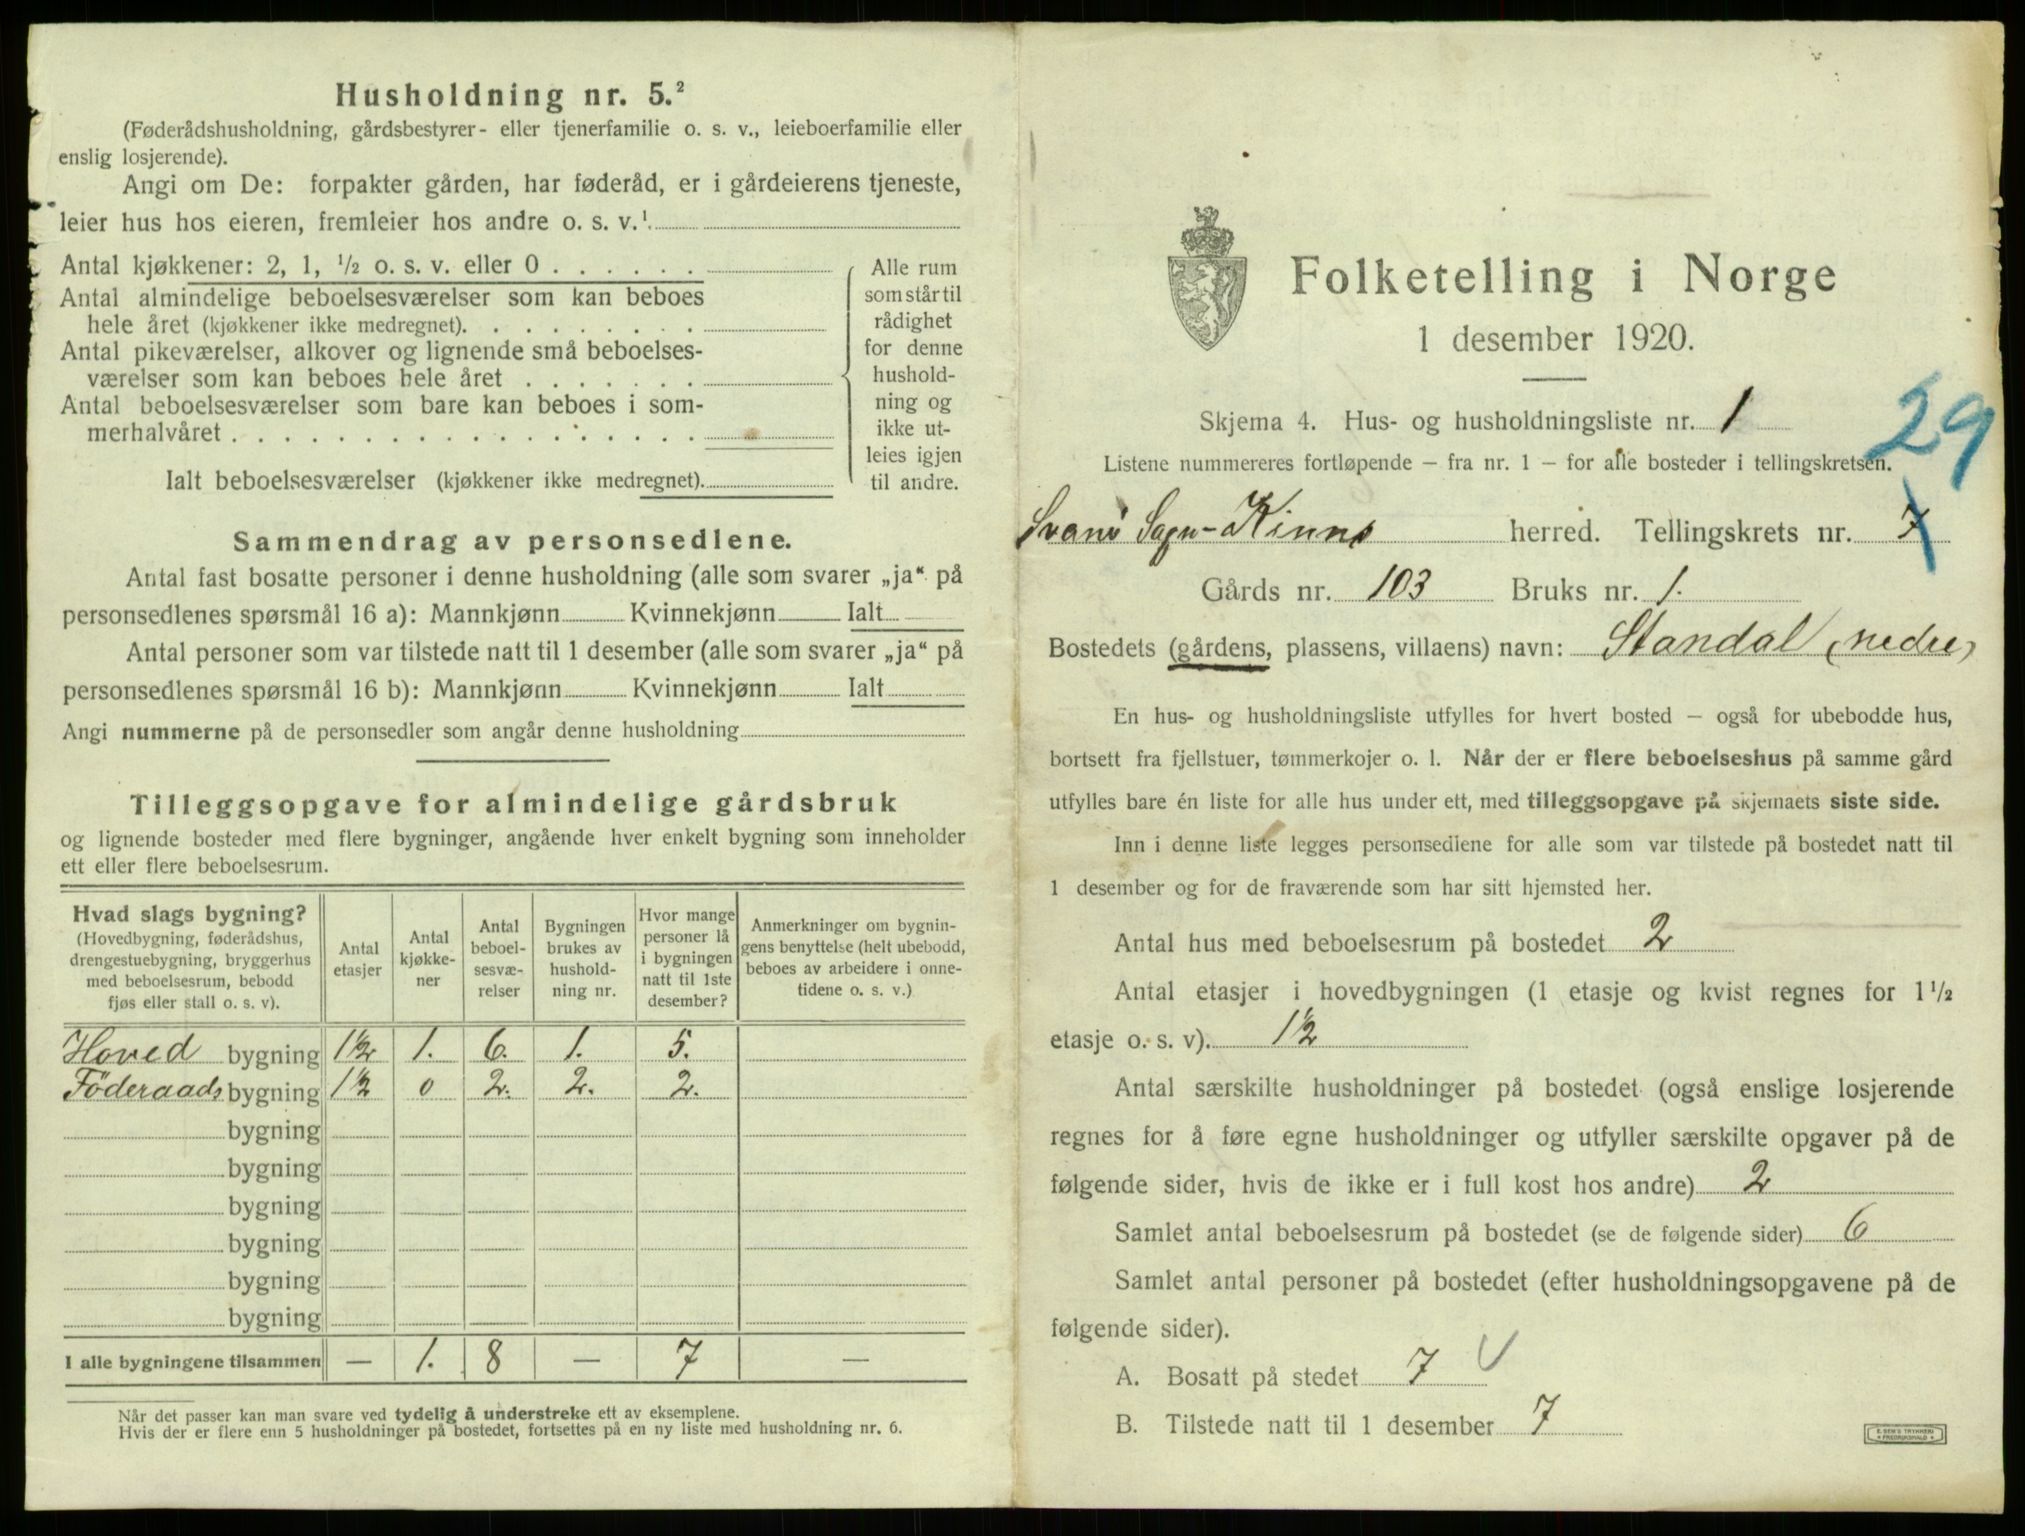 Husholdning nr. 5.²
(Føderådshusholdning, gårdsbestyrer- eller tjenerfamilie o. s. v., leieboerfamilie eller
enslig losjerende).
Angi om De: forpakter gården, har føderåd, er i gårdeierens tjeneste,
leier hus hos eieren, fremleier hos andre o. s. v.¹
Antal kjøkkener: 2, 1, ½ o. s. v. eller 0 . . . . . .
Antal almindelige beboelsesværelser som kan beboes
hele året (kjøkkener ikke medregnet). . . . . . . . .
Antal pikeværelser, alkover og lignende små beboelses-
værelser som kan beboes hele året . . . . . . .
Antal beboelsesværelser som bare kan beboes i som-
merhalvåret . . . . . . . . . . . . . . . . .
Ialt beboelsesværelser (kjøkkener ikke medregnet).
Alle rum
som står til
rådighet
for denne
hushold-
ning og
ikke ut-
leies igjen
til andre.
Sammendrag av personsedlene.
Antal fast bosatte personer i denne husholdning (alle som svarer „ja“ på
personsedlenes spørsmål 16 a): Mannkjønn Kvinnekjønn Ialt
Antal personer som var tilstede natt til 1 desember (alle som svarer „ja“ på
personsedlenes spørsmål 16 b): Mannkjønn Kvinnekjønn Ialt
Angi nummerne på de personsedler som angår denne husholdning
Tilleggsopgave for almindelige gårdsbruk
og lignende bosteder med flere bygninger, angående hver enkelt bygning som inneholder
ett eller flere beboelsesrum.
Hvad slags bygning?
(Hovedbygning, føderådshus,
drengestuebygning, bryggerhus
med beboelsesrum, bebodd
fjøs eller stall o. s. v).
Antal
etasjer
Antal
kjøkke-
ner
Antal
beboel-
sesvæ-
relser
Bygningen
brukes av
hushold-
ning nr.
Hvor mange
personer lå
i bygningen
natt til 1ste
desember?
Anmerkninger om bygnin-
gens benyttelse (helt ubebodd,
beboes av arbeidere i onne-
tidene o. s. v.)
Hoved bygning 1½ 1. 6. 1. 5.
Föderaads bygning 1½ 0 2. 2. 2.
bygning
bygning
bygning
bygning
bygning
bygning
I alle bygningene tilsammen — 1. 8 — 7 —
Når det passer kan man svare ved tydelig å understreke ett av eksemplene.
Hvis der er flere enn 5 husholdninger på bostedet, fortsettes på en ny liste med husholdning nr. 6.
Folketelling i Norge
1 desember 1920.
Skjema 4. Hus- og husholdningsliste nr. 1
29
Listene nummereres fortløpende – fra nr. 1 – for alle bosteder i tellingskretsen.
Svanö Sogn - Kinns herred. Tellingskrets nr. 7
Gårds nr. 103 Bruks nr. 1.
Bostedets (gårdens, plassens, villaens) navn: Standal (nedre)
En hus- og husholdningsliste utfylles for hvert bosted – også for ubebodde hus,
bortsett fra fjellstuer, tømmerkojer o. l. Når der er flere beboelseshus på samme gård
utfylles bare én liste for alle hus under ett, med tilleggsopgave på skjemaets siste side.
Inn i denne liste legges personsedlene for alle som var tilstede på bostedet natt til
1 desember og for de fraværende som har sitt hjemsted her.
Antal hus med beboelsesrum på bostedet 2
Antal etasjer i hovedbygningen (1 etasje og kvist regnes for 1½
etasje o. s. v). 1½
Antal særskilte husholdninger på bostedet (også enslige losjerende
regnes for å føre egne husholdninger og utfyller særskilte opgaver på de
følgende sider, hvis de ikke er i full kost hos andre) 2
Samlet antal beboelsesrum på bostedet (se de følgende sider) 6
Samlet antal personer på bostedet (efter husholdningsopgavene på de
følgende sider).
A. Bosatt på stedet 7
B. Tilstede natt til 1 desember 7
E. SEM'S TRYKKERI
FREDRIKSHALD